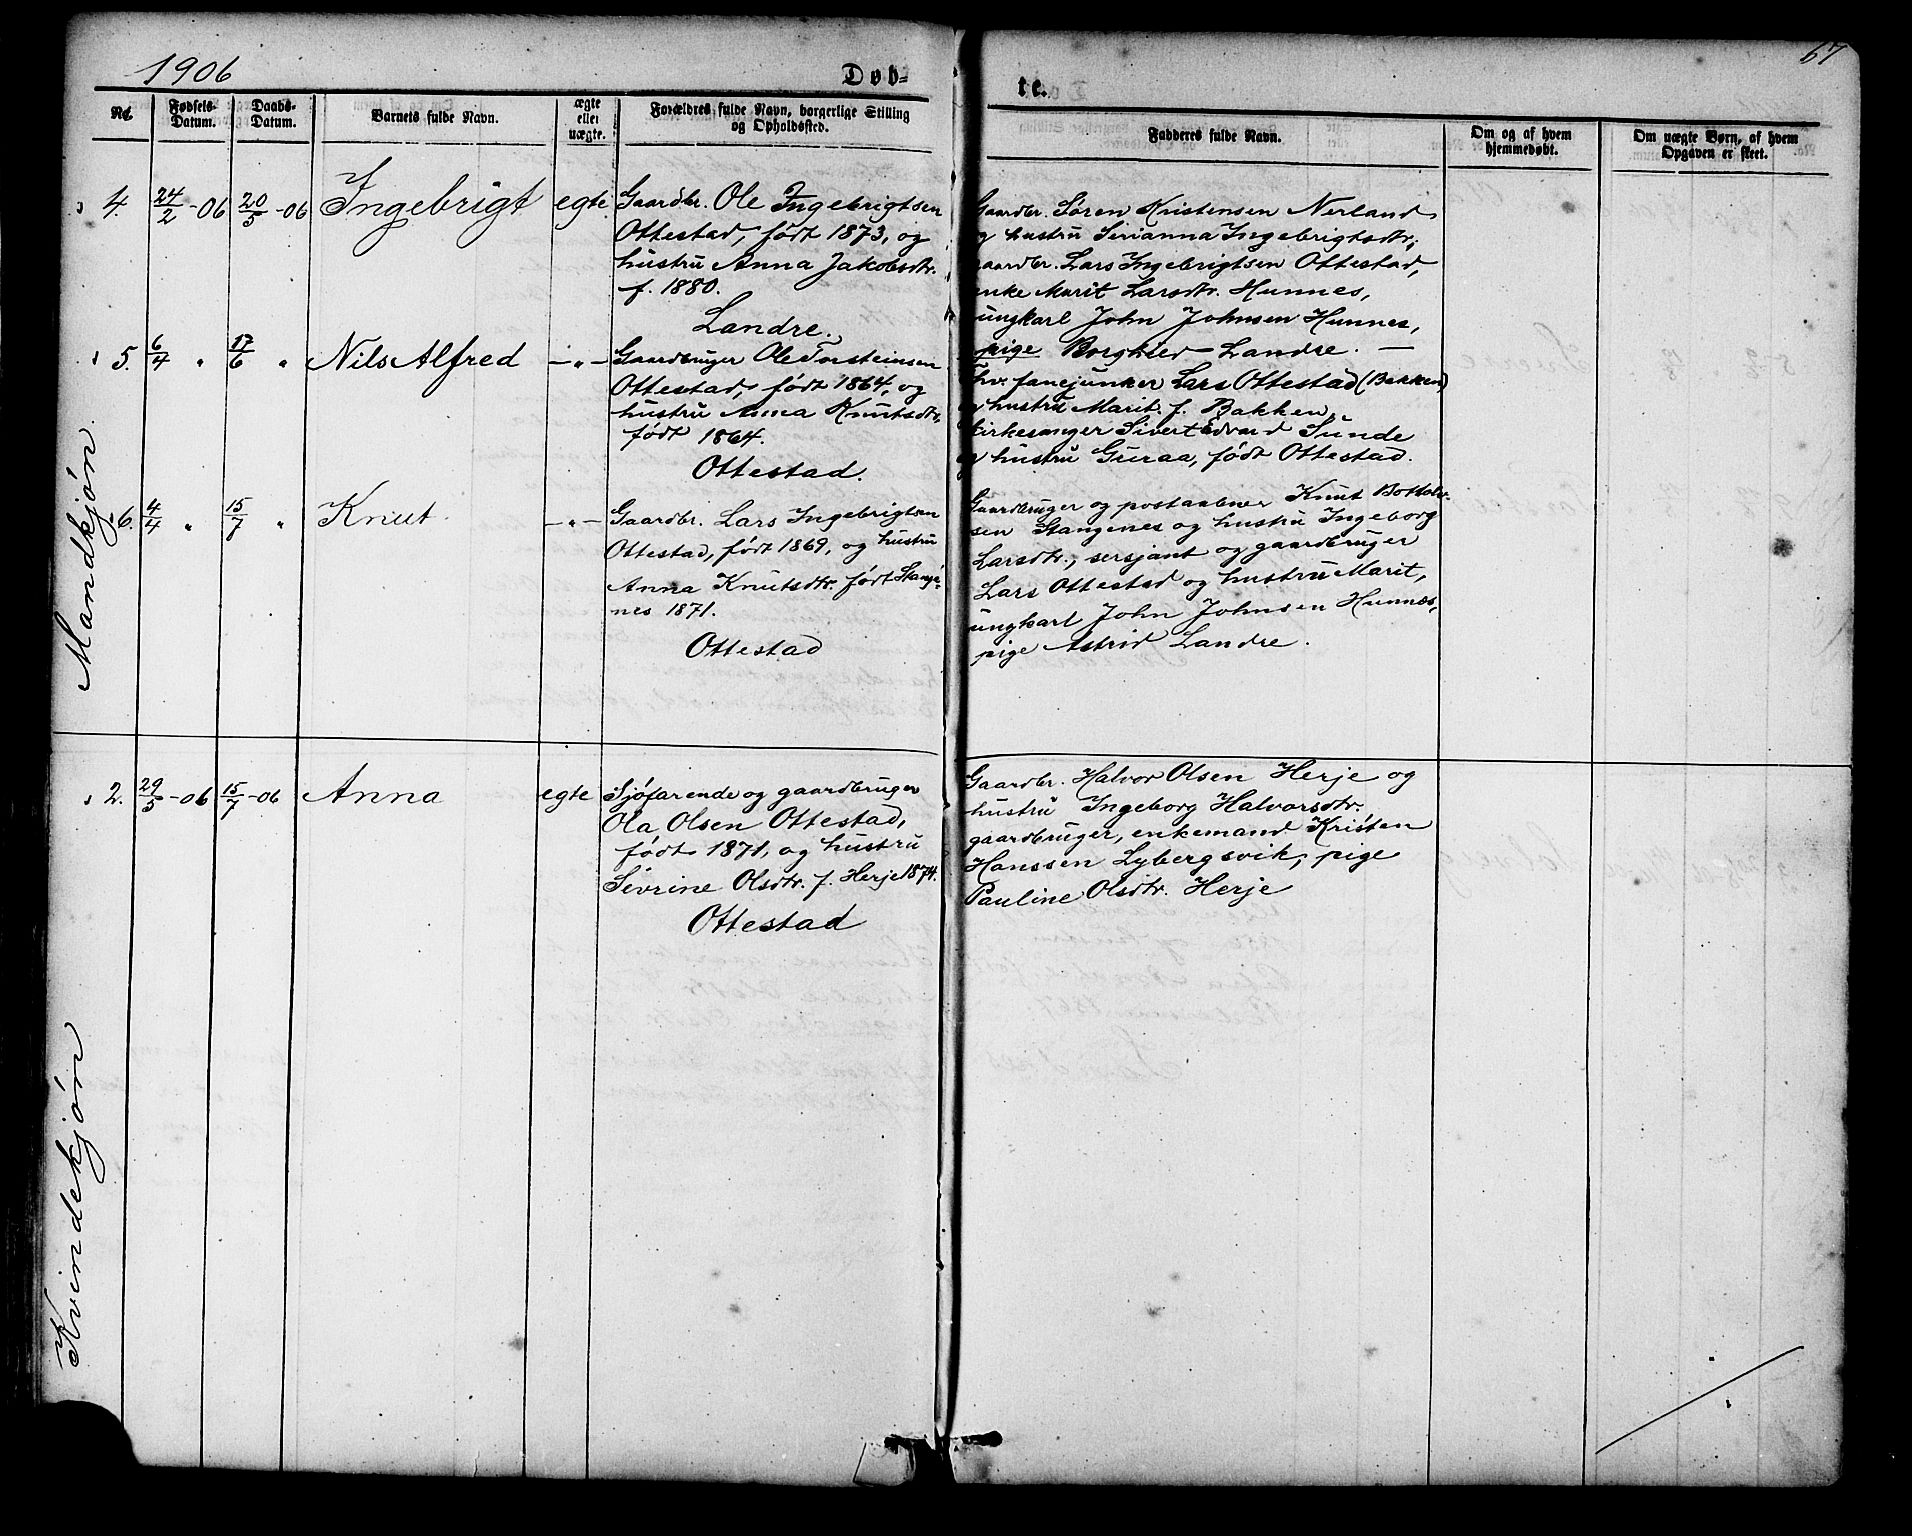 1906
Døb-
te.
67
No.
Fødsels-
Datum.
Daabs-
Datum.
Barnets fulde Navn.
ægte
eller
uægte.
Forældres fulde Navn, borgerlige Stilling
og Opholdssted.
Fadderes fulde Navn.
Om og af hvem
hjemmedøbt.
Om uægte Børn, af hvem
Opgaven er skeet.
Mandkjøn.
4. 24/2-06 20/5-06 Ingebrigt egte
Gaardbr. Ole Ingebrigtsen
Ottestad, født 1873, og
hustru Anna Jakobsdtr.
f. 1880.
Landre.
Gaardbr. Søren Kristensen Nerland
og hustru Serianna Ingebrigtsdtr.,
gaardbr. Lars Ingebrigtsen Ottestad,
enke Marit Larsdtr. Hunnes,
ungkarl John Johnsen Hunnes,
pige Borghild Landre. —
5. 6/4 " 17/6 " Nils Alfred — " —
Gaardbruger Ole Torsteinsen
Ottestad, født 1864, og
hustru Anna Knutsdtr,
født 1864.
Ottestad.
Fhv. fanejunker Lars Ottestad (Bakken)
og hustru Marit f. Bakken,
kirkesanger Sivert Edvard Sunde
og hustru Guraa, født Ottestad.
6. 4/4 " 15/7 " Knut — " —
Gaardbr. Lars Ingebrigtsen
Ottestad, født 1869, og hustru
Anna Knutsdtr. født Stange-
nes 1871.
Ottestad
Gaardbruger og postaabner Knut Bottolv-
sen Stangenes og hustru Ingeborg
Larsdtr., sersjant og gaardbruger
Lars Ottestad og hustru Marit,
ungkarl John Johnsen Hunnes,
pige Astrid Landre.
Kvindekjøn
2. 29/5-06 15/7-06 Anna egte
Sjøfarende og gaardbruger
Ola Olsen Ottestad,
født 1871, og hustru
Sevrine Olsdtr. f. Herje 1874.
Ottestad
Gaardbr. Halvor Olsen Herje og
hustru Ingeborg Halvorsdtr.
gaardbruger, enkemand Kristen
Hanssen Lybergsvik, pige
Pauline Olsdtr. Herje